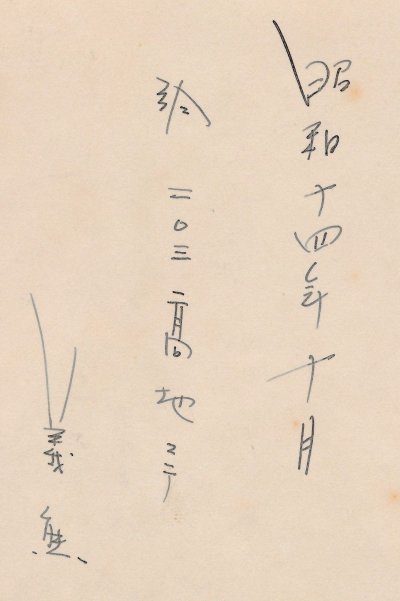 昭和十四年十月
於二〇三高地ニテ
義熊